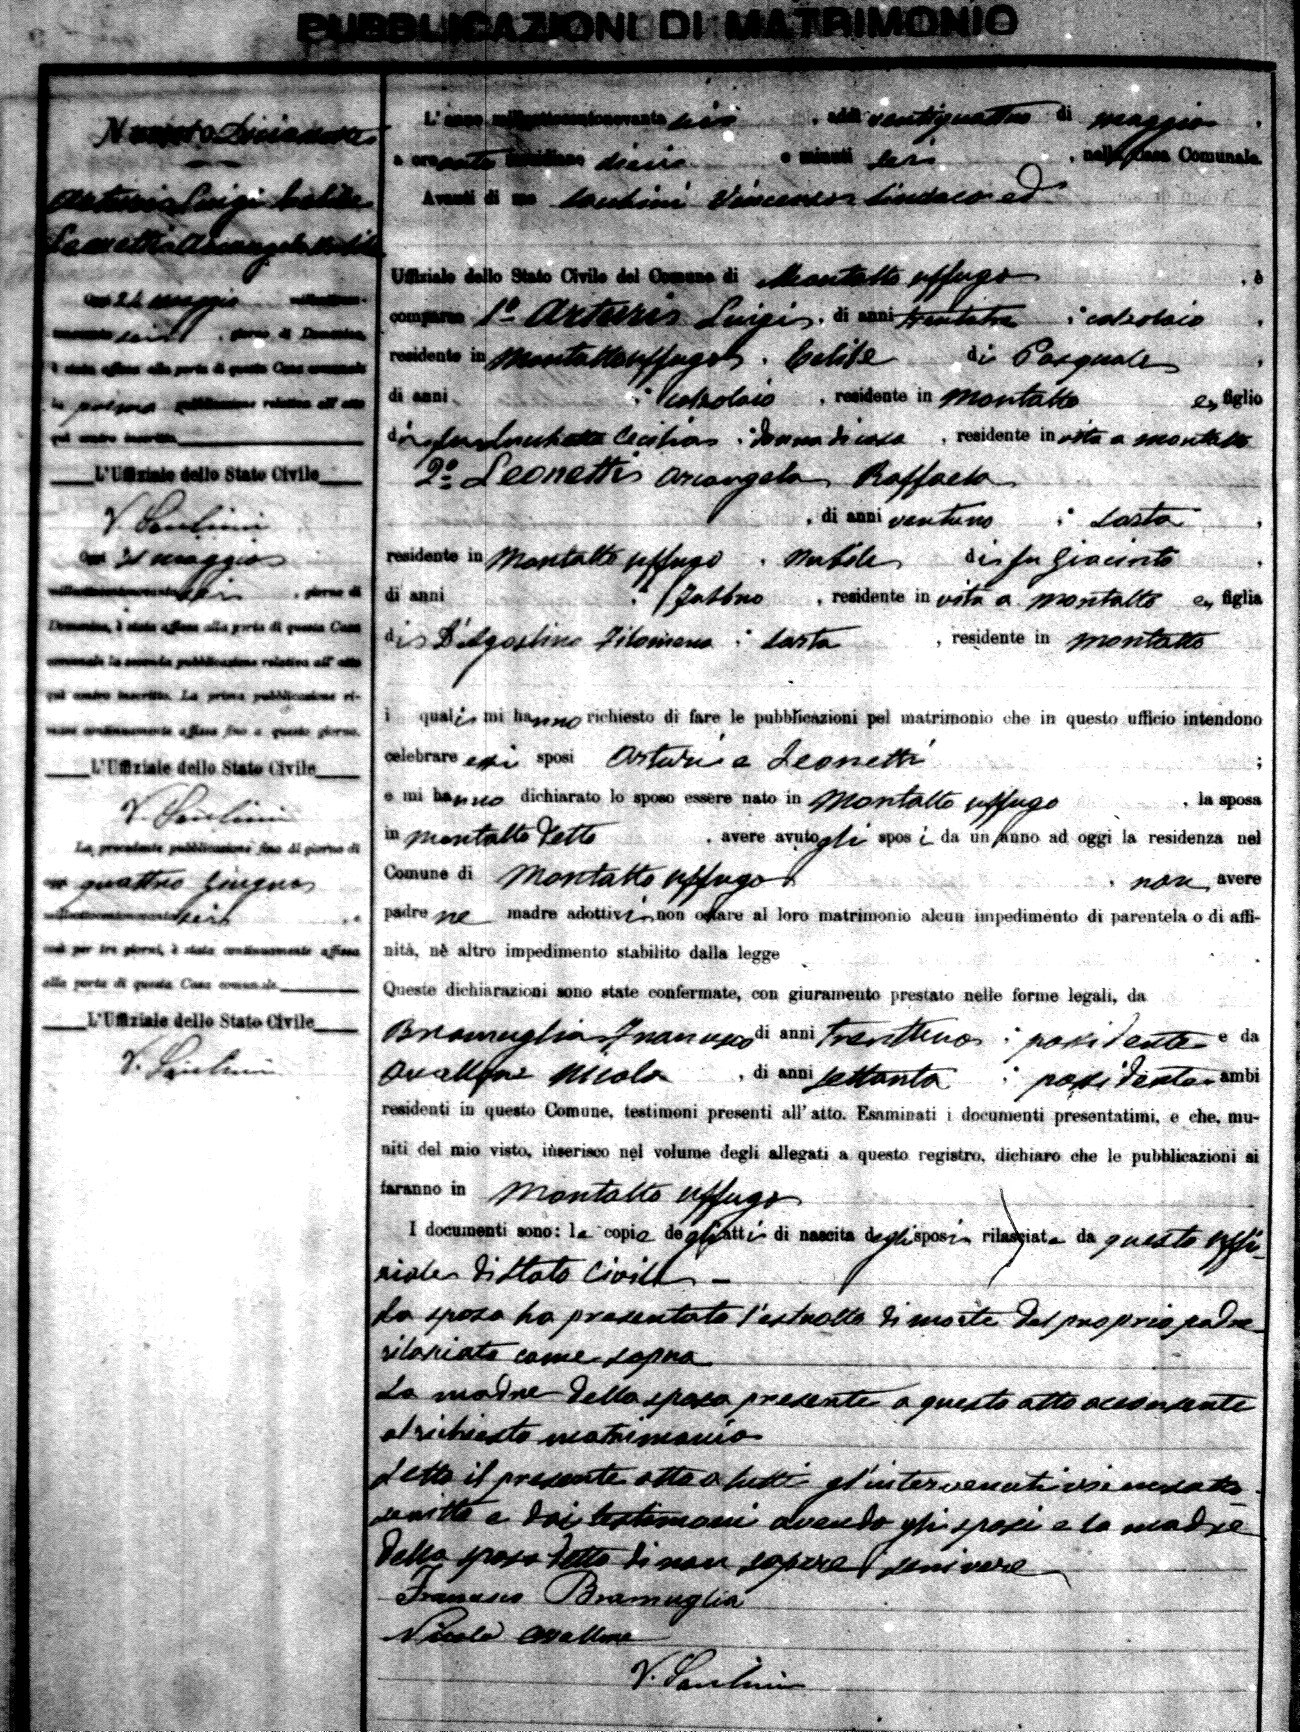 PUBBLICAZIONI DI MATRIMONIO
Numero Diciannove
Arturi Luigi Celibe
Leonetti Arcangela Nubile
Oggi 24 maggio millottocento-
novanta sei, giorno di Domenica,
è stata affissa alla porta di questa Casa comunale
la prima pubblicazione relativa all'atto
qui contro inscritto.
L'Uffiziale dello Stato Civile
Oggi 31 maggio
millottocentonovanta sei, giorno di
Domenica, è stata affissa alla porta di questa Casa
comunale la seconda pubblicazione relativa all'atto
qui contro inscritto. La prima pubblicazione ri-
mase continuamente affissa fino a questo giorno.
L'Uffiziale dello Stato Civile
La precedente pubblicazione fino al giorno di
oggi quattro Giugno
millottocentonovanta sei, e
così per tre giorni, è stata continuamente affissa
alla porta di questa Casa comunale.
L'Uffiziale dello Stato Civile
L'anno millottocentonovanta sei, addì ventiquattro di maggio,
a ore anti meridiane dieci e minuti sei, nella Casa Comunale.
Avanti di me Vincenzo Sindaco ed
Uffiziale dello Stato Civile del Comune di Montalto Uffugo, è
comparso 1º Arturi Luigi, di anni trentatre, calzolaio,
residente in Montalto Uffugo, Celibe di Pasquale,
di anni, calzolaio, residente in Montalto e figlio
di fu Cecilia, donna di casa, residente in vita a Montalto
2º Leonetti Arcangela Raffaela
, di anni ventuno, sarta,
residente in Montalto Uffugo, nubile di fu Giacinto,
di anni, fabbro, residente in vita a Montalto e figlia
di D'Agostino Filomena, sarta, residente in Montalto
i quali mi hanno richiesto di fare le pubblicazioni pel matrimonio che in questo ufficio intendono
celebrare essi sposi Arturi e Leonetti;
e mi hanno dichiarato lo sposo essere nato in Montalto Uffugo, la sposa
in Montalto detto, avere avuto gli sposi da un anno ad oggi la residenza nel
Comune di Montalto Uffugo, non avere
padre ne madre adottivi, non ostare al loro matrimonio alcun impedimento di parentela o di affi-
nità, nè altro impedimento stabilito dalla legge
Queste dichiarazioni sono state confermate, con giuramento prestato nelle forme legali, da
Bramuglia Francesco di anni trentuno, possidente e da
Avallone Nicola, di anni settanta, possidente ambi
residenti in questo Comune, testimoni presenti all'atto. Esaminati i documenti presentatimi, e che, mu-
niti del mio visto, inserisco nel volume degli allegati a questo registro, dichiaro che le pubblicazioni si
faranno in Montalto Uffugo
I documenti sono: le copie degli atti di nascita degli sposi rilasciate da questo Uffi-
ziale di Stato Civile —
La sposa ha presentato l'estratto di morte del proprio padre
rilasciato come sopra
La madre della sposa presente a questo atto acconsente
al richiesto matrimonio
Letto il presente atto a tutti gl'intervenuti vien meco sotto-
scritto e dai testimoni avendo gli sposi e la madre
della sposa detto di non sapere scrivere
Francesco Bramuglia
Nicola Avallone